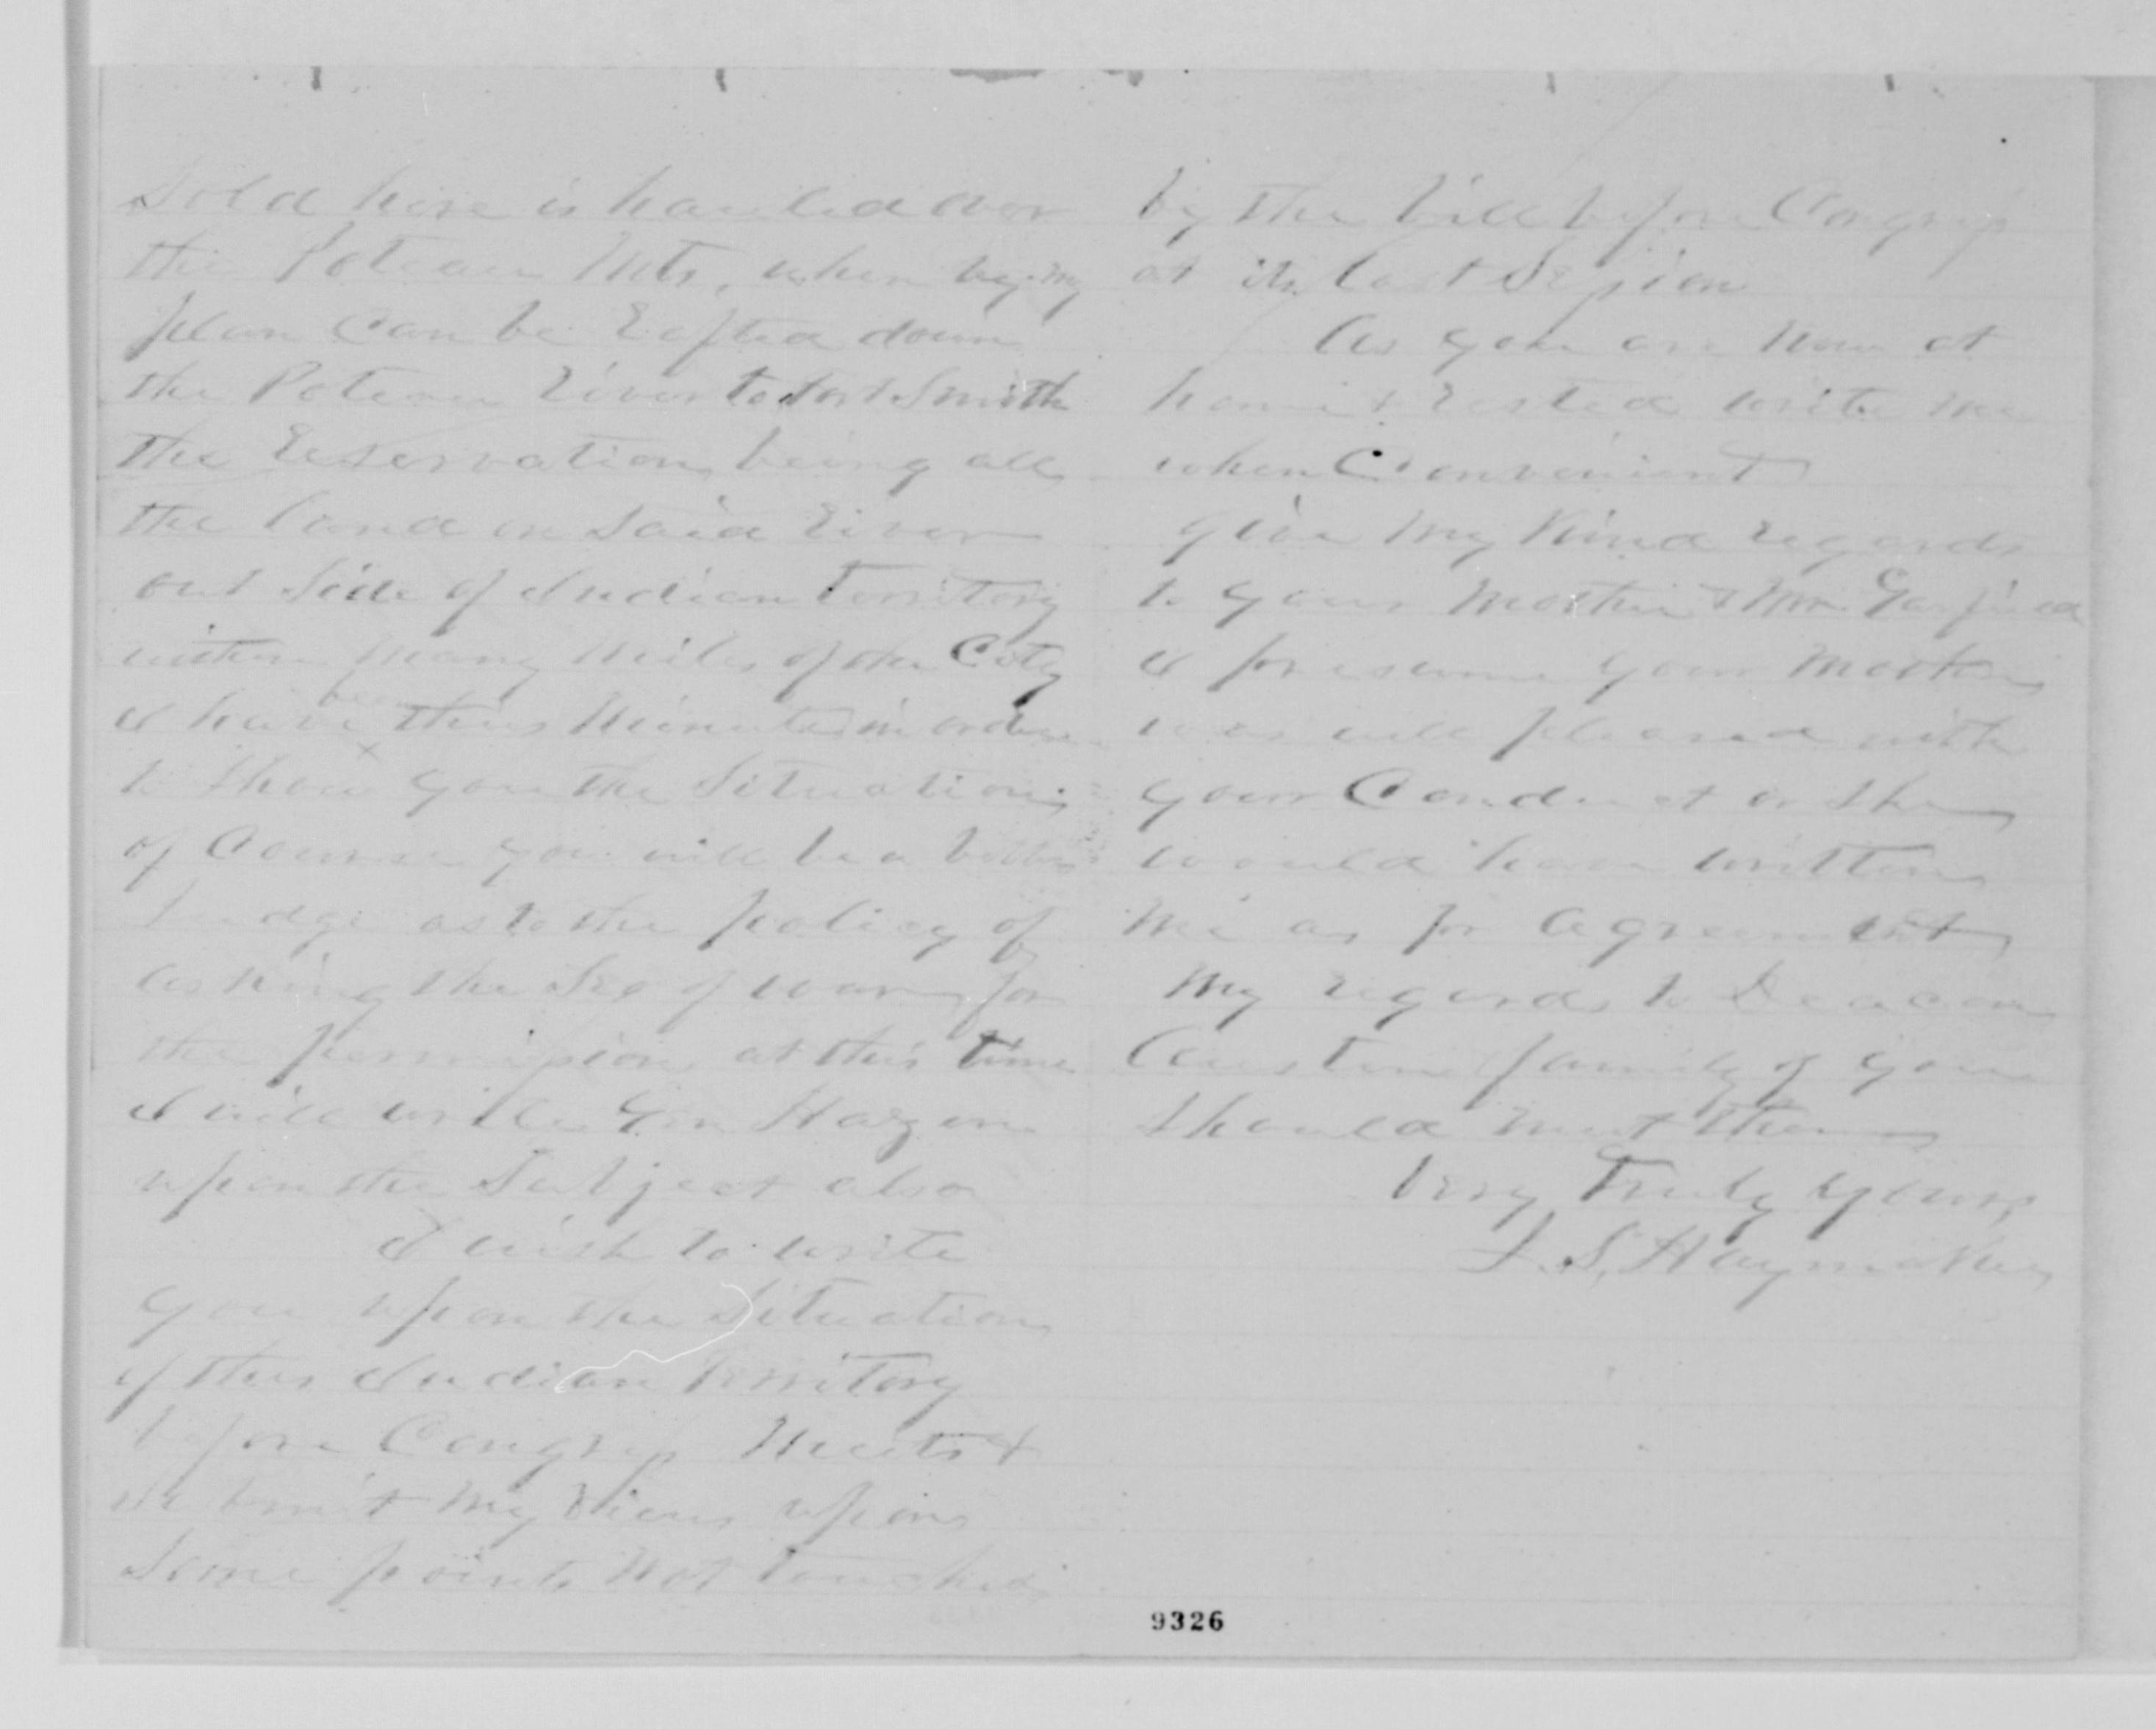 Sold here is hauled over
the Poteau Mts, when by my
plan can be rafted down
the Poteau River to Fort Smith
the Reservation being all
the land on said River
out side of Indian Territory
within many miles of the City
I have been thus Minute in order
to Show you the Situation,
of Course you will be a better
Judge as to the policy of
asking the Sec of War for
the permission at this time
I will write Gen Hazen
upon the Subject also
I wish to write
you upon the Situation
of this Indian Territory
before Congress Meets &
submit my views upon
Some points Not touched
by the bill before Congress
at its last Session
As you are Now at
home & rested write me
when Convenient
give my Kind regards
to your Mother & Mrs Garfield
I presume your Mother
was well pleased with
your Conduct or She
would have written
me as per agreement
My regards to Deacon
Austin family if you
Should meet them
Very Truly Yours,
F. S. Haymaker
9326